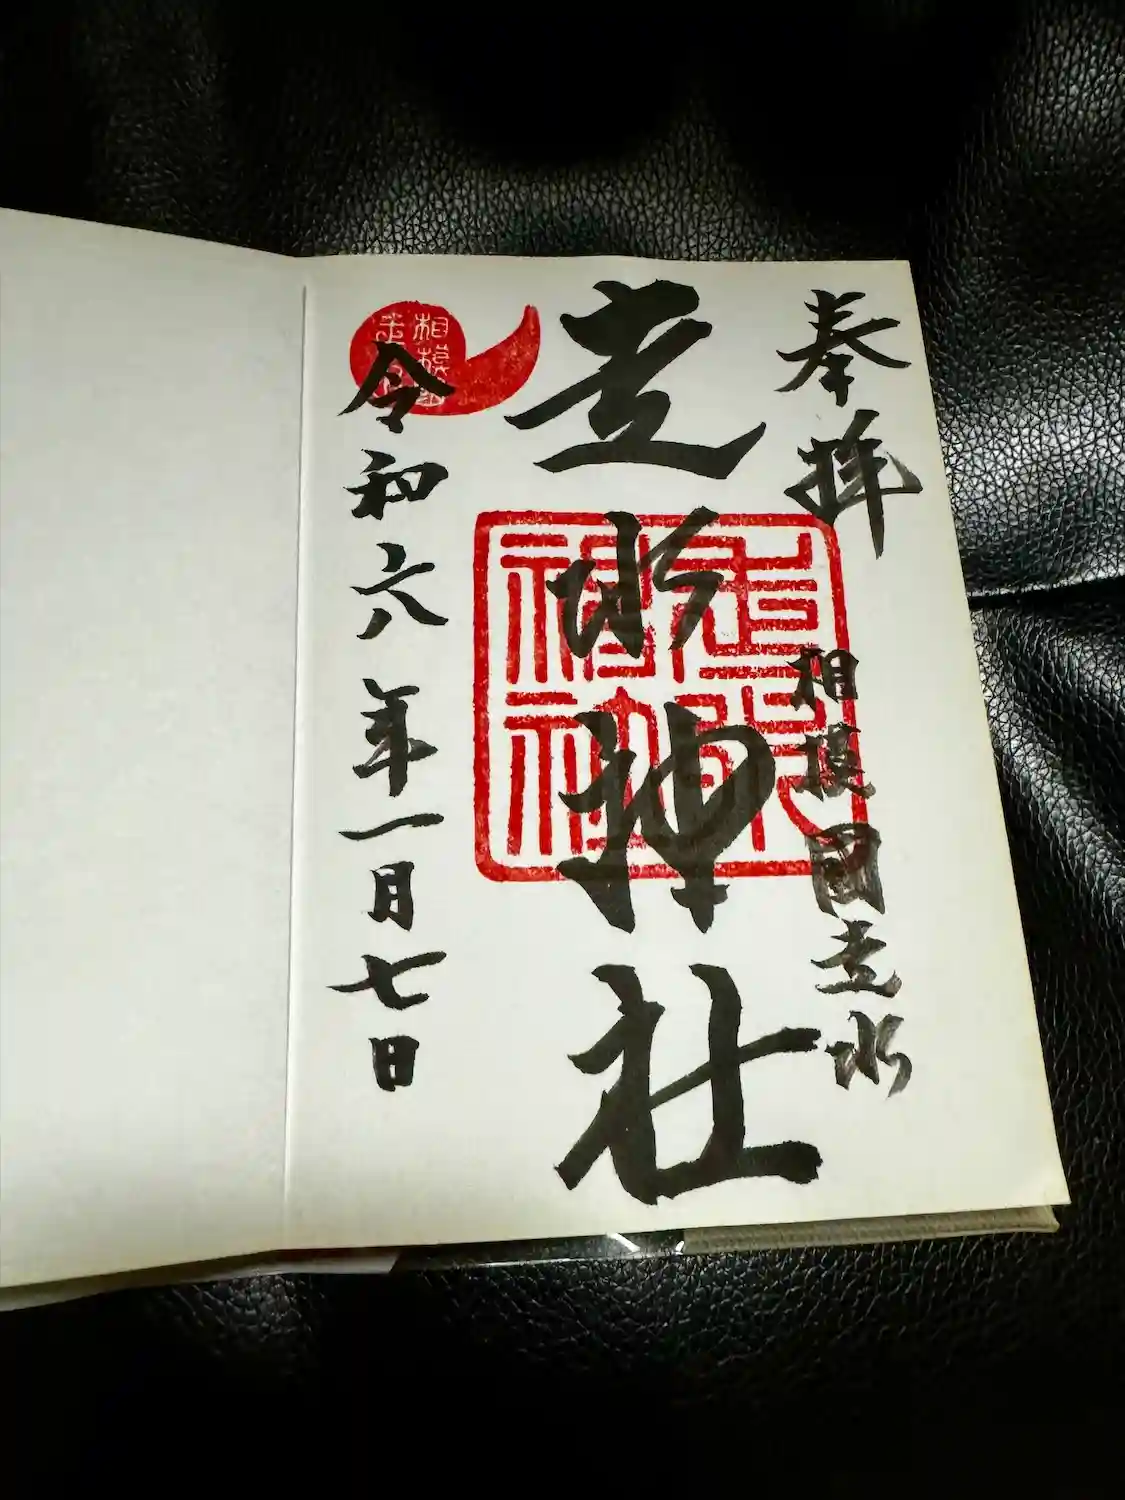 奉拝
相模國走水
走水神社
走水
神社
相模國
令和六年一月七日